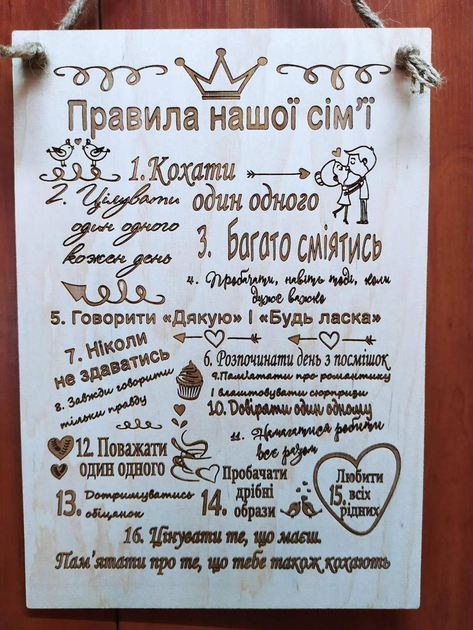 Правила нашої сім'ї
1. Кохати
один одного
2. Цілувати
один одного
кожен день
3. Багато сміятись
4. Пробачати, навіть тоді, коли
дуже важко
5. Говорити «Дякую» І «Будь ласка»
6. Розпочинати день з посмішок
7. Ніколи
не здаватись
8. Завжди говорити
тільки правду
9. Пам'ятати про романтику
і влаштовувати сюрпризи
10. Довіряти один одному
11. Намагатися робити
все разом
12. Поважати
один одного
13. Дотримуватись
обіцянок
14. Пробачати
дрібні
образи
15. Любити
всіх
рідних
16. Цінувати те, що маєш.
Пам'ятати про те, що тебе також кохають